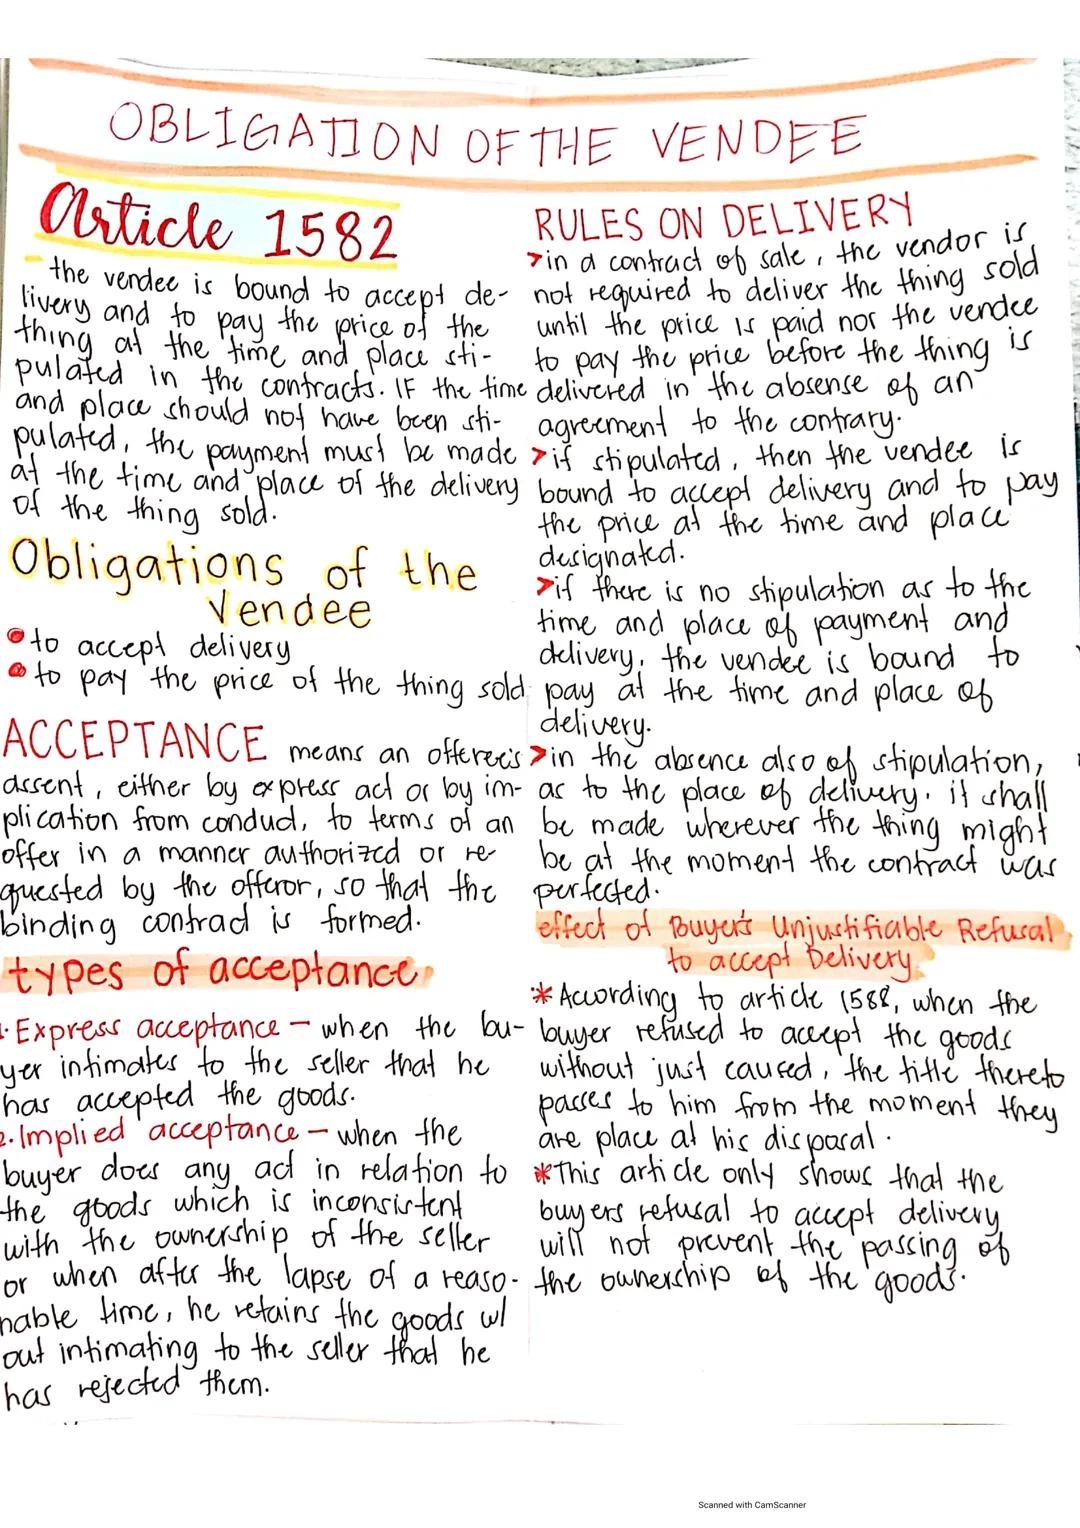 OBLIGATION OF THE VENDEE
Article 1582
- the vendee is bound to accept de-
livery and to pay the price of the
thing at the time and place sti-
pulated in the contracts. IF the time
and place should not have been sti-
pulated, the payment must be made
at the time and place of the delivery
of the thing sold.
Obligations of the
Vendee
• to accept delivery
• to pay the price of the thing sold.
ACCEPTANCE means an offeree's
assent, either by express act or by im-
plication from conduct, to terms of an
offer in a manner authorized or re-
quested by the offeror, so that the
binding contract is formed.
types of acceptance
1. Express acceptance - when the bu-
yer intimates to the seller that he
has accepted the goods.
2. Implied acceptance - when the
buyer does any act in relation to
the goods which is inconsistent
with the ownership of the seller
or when after the lapse of a reaso-
nable time, he retains the goods w/
out intimating to the seller that he
has rejected them.
RULES ON DELIVERY
>in a contract of sale, the vendor is
not required to deliver the thing sold
until the price is paid nor the vendee
to pay the price before the thing is
delivered in the absense of an
agreement to the contrary.
>if stipulated, then the vendee is
bound to accept delivery and to pay
the price at the time and place
designated.
>if there is no stipulation as to the
time and place of payment and
delivery, the vendee is bound to
pay at the time and place of
delivery.
>in the absence also of stipulation,
as to the place of delivery. it shall
be made wherever the thing might
be at the moment the contract was
perfected.
effect of Buyer's Unjustifiable Refusal
to accept Delivery
* According to article 1588, when the
buyer refused to accept the goods
without just caused, the title thereto
passes to him from the moment they
are place at his disposal.
* This article only shows that the
buyers refusal to accept delivery
will not prevent the passing of
the ownership of the goods.
Scanned with CamScanner